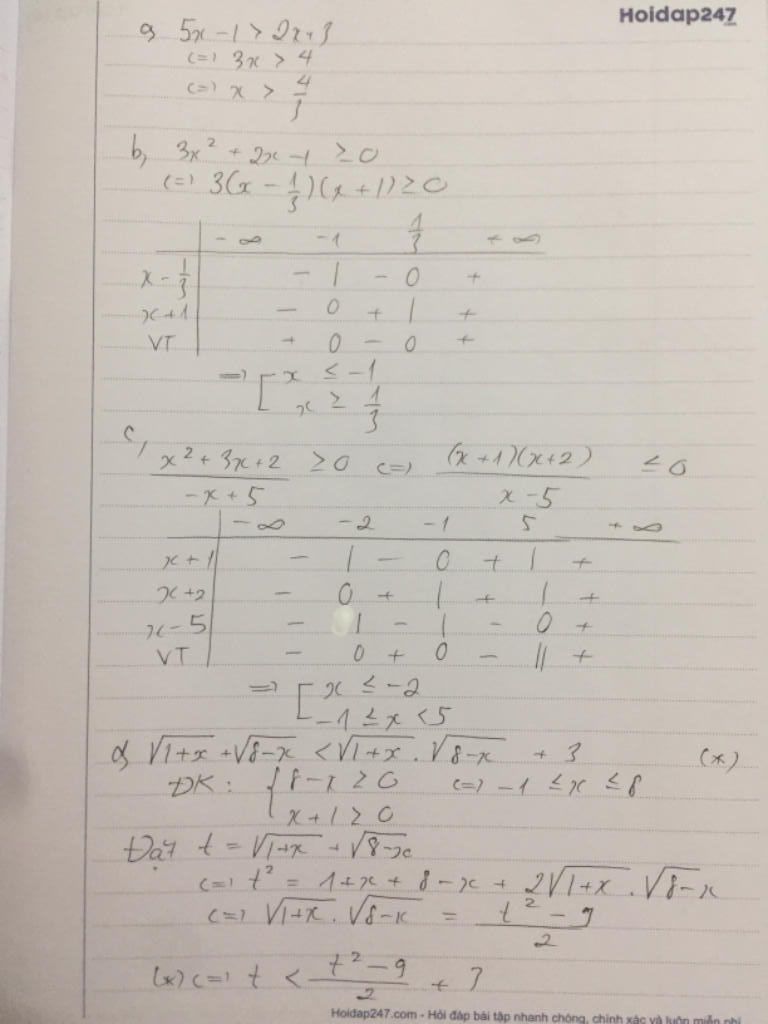 Hoidap247
a, 5x - 1 > 2x + 3
<=> 3x > 4
<=> x > 4/3
b, 3x² + 2x - 1 ≥ 0
<=> 3(x - 1/3)(x + 1) ≥ 0
-∞ -1 1/3 +∞
x - 1/3 - | - 0 +
x + 1 - 0 + | +
VT + 0 - 0 +
=> [ x ≤ -1
x ≥ 1/3
c, (x² + 3x + 2)/(-x + 5) ≥ 0 <=> (x + 1)(x + 2)/(x - 5) ≤ 0
-∞ -2 -1 5 +∞
x + 1 - | - 0 + | +
x + 2 - 0 + | + | +
x - 5 - | - | - 0 +
VT - 0 + 0 - || +
=> [ x ≤ -2
-1 ≤ x < 5
d, √(1+x) + √(8-x) < √(1+x) . √(8-x) + 3 (*)
ĐK: { 8 - x ≥ 0 <=> -1 ≤ x ≤ 8
x + 1 ≥ 0
Đặt t = √(1+x) + √(8-x)
<=> t² = 1 + x + 8 - x + 2√(1+x) . √(8-x)
<=> √(1+x) . √(8-x) = (t² - 9)/2
(*) <=> t < (t² - 9)/2 + 3
Hoidap247.com - Hỏi đáp bài tập nhanh chóng, chính xác và luôn miễn phí